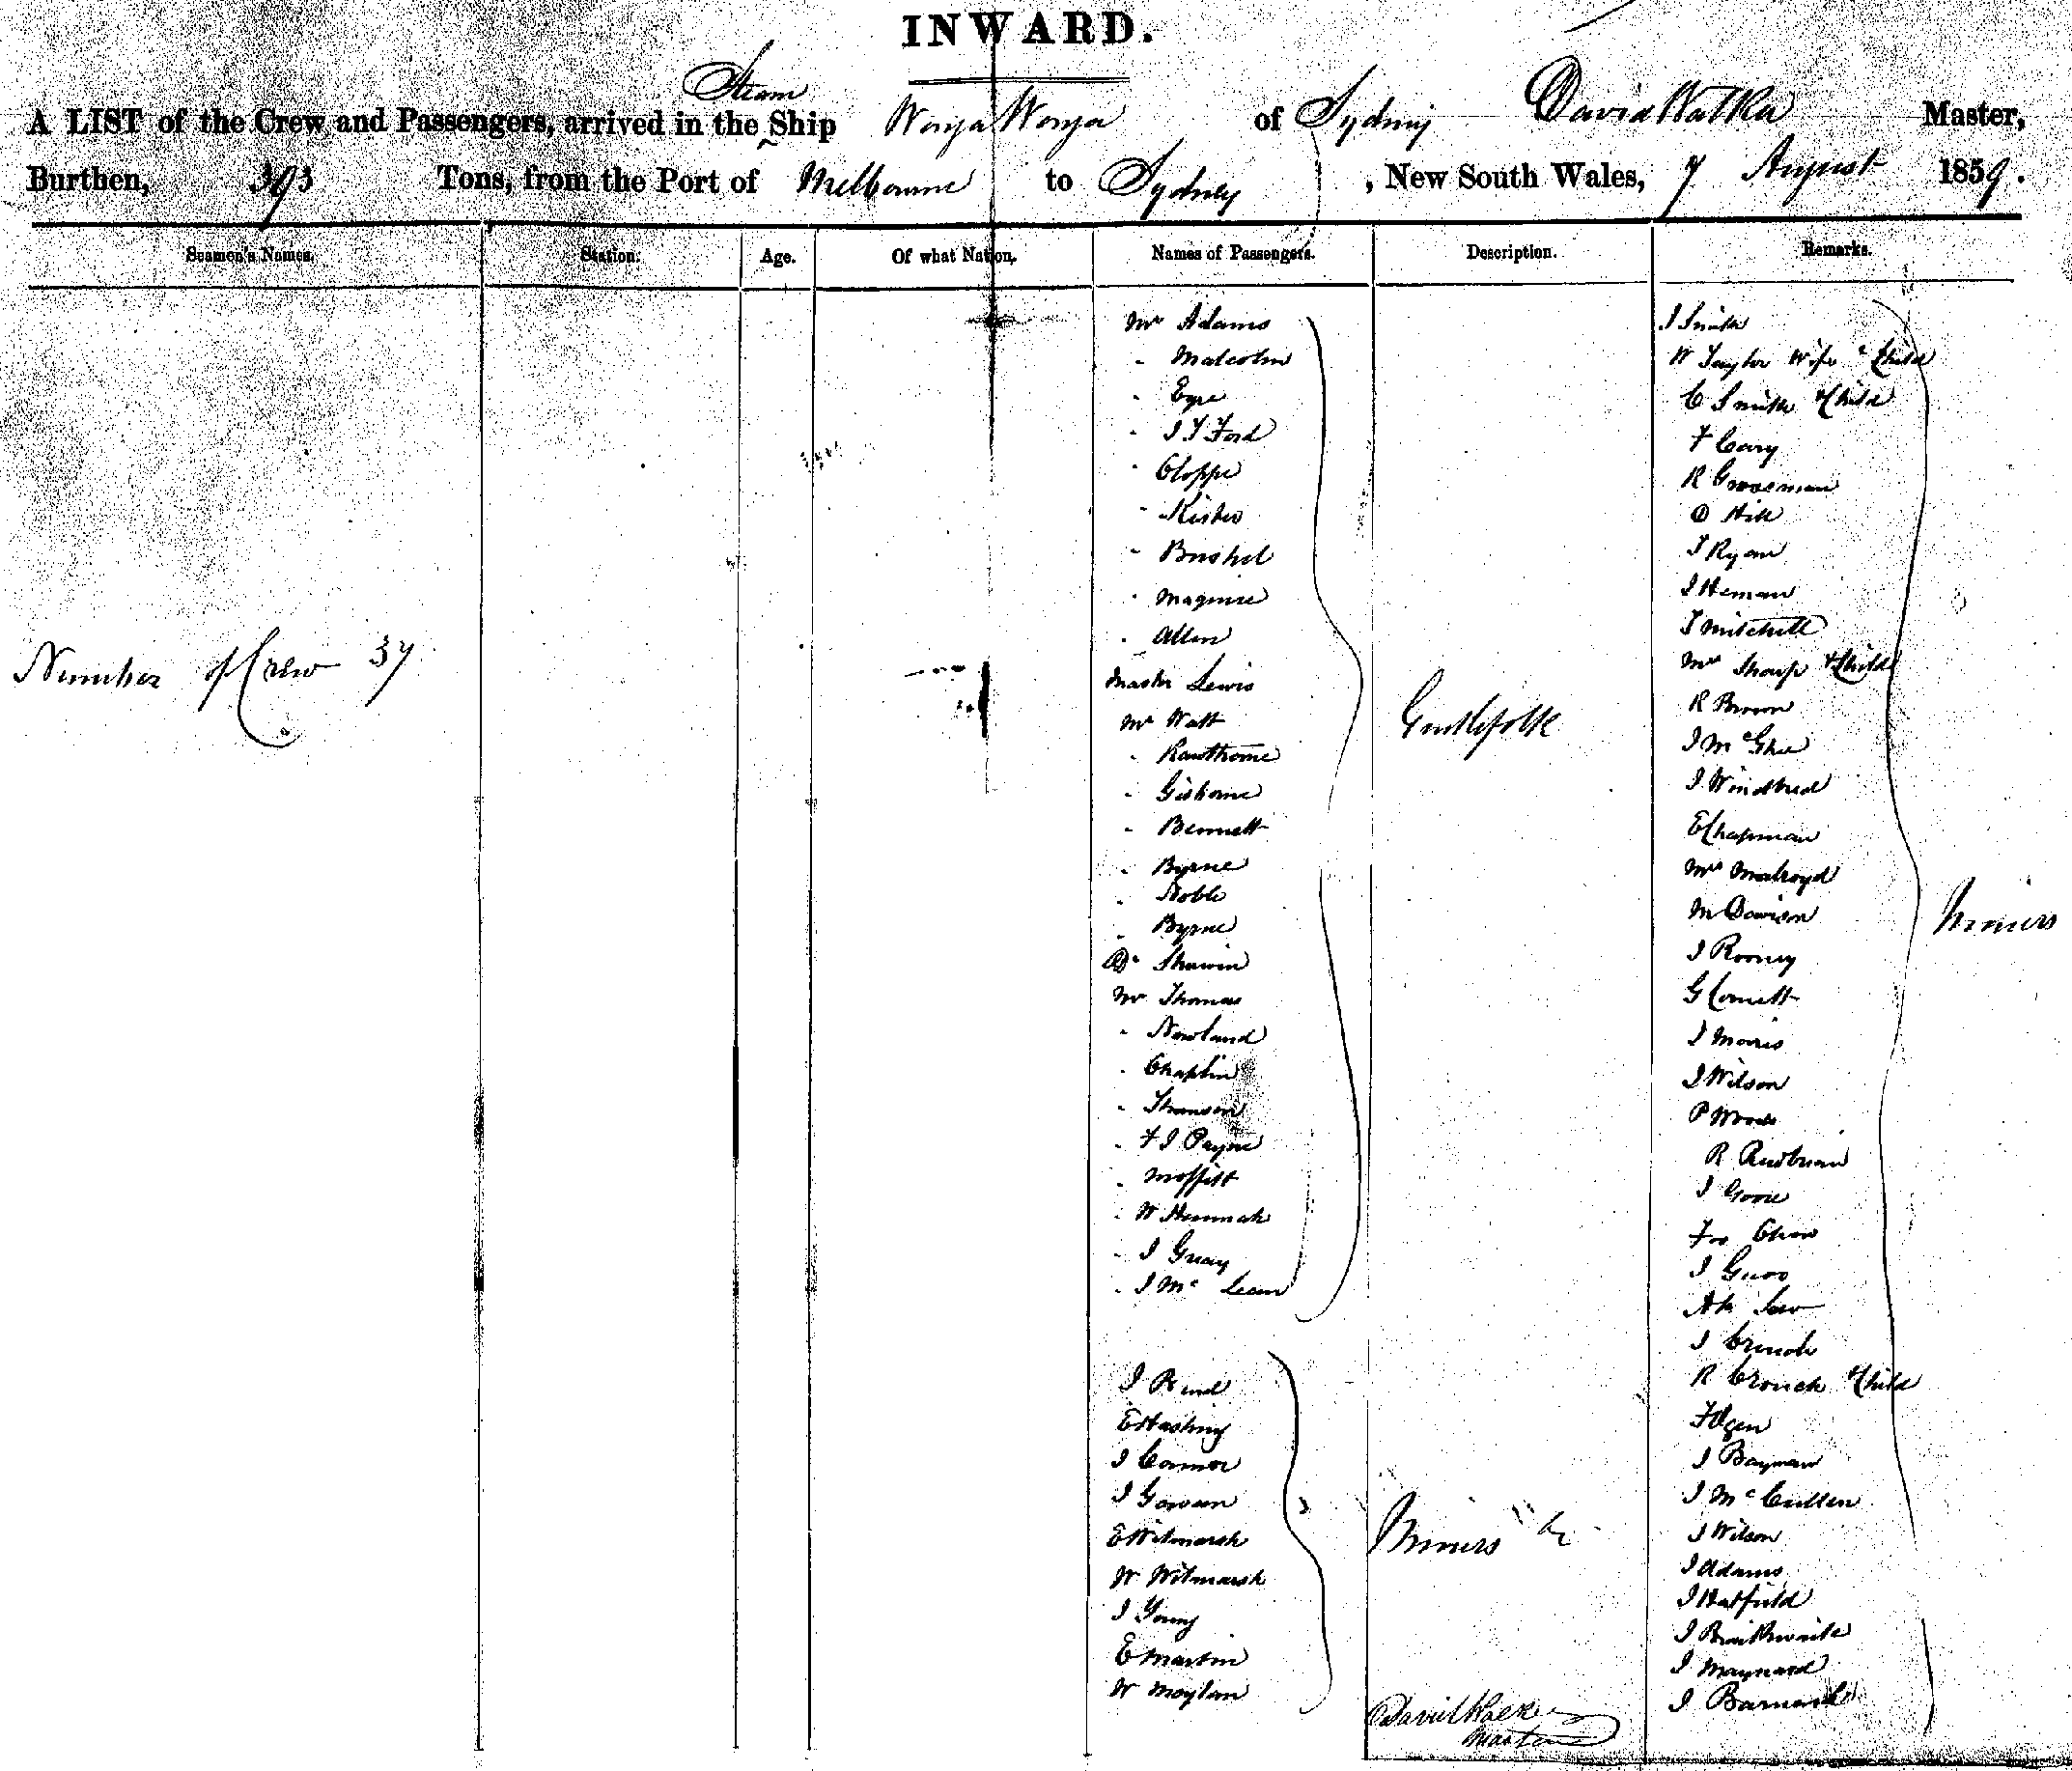 INWARD.
Steam
A LIST of the Crew and Passengers, arrived in the Ship Wonga Wonga of Sydney David Walker Master,
Burthen, 393 Tons, from the Port of Melbourne to Sydney, New South Wales, 7 August 1859.
Seamen's Names. Station. Age. Of what Nation. Names of Passengers. Description. Remarks.
Number of Crew 37
Mr Adams
" Malcolm
" Eyre
" J T Ford
" Cloppe
" Kisho
" Bushel
" Maguire
" Allen
Master Lewis
Mr Watt
" Rawthorne
" Gisborne
" Bennett
" Byrne
" Noble
" Byrne
Dr Sherwin
Mr Thomas
" Newland
" Chaplin
" Thomson
" F J Payne
" Moffitt
" W Hannah
" J Gray
" J Mc Lean
Gentlefolk
J Rind
E Hasting
J Connor
J Gowan
E Witmarsh
W Witmarsh
J Young
E Martin
W Moylan
Miners &c
David Walker
Master
J Smith
W Taylor Wife & Child
C Smith & Child
F Cary
R Grossman
D Hill
J Ryan
J Heman
T Mitchell
Mrs Sharp & Child
R Brown
J McGhee
J Windbred
E Chapman
Mrs Malroyd
M Davison
J Rooney
G Cornett
J Morris
J Wilson
P Woods
R
J Goore
Foo Chow
J Guoo
Ah Sow
J Crouch
R Crouch & Child
F Ogen
J Bayman
J McCullen
J Wilson
J Adams
J Hatfield
J Braithwaite
J Maynard
J Barnard
Miners